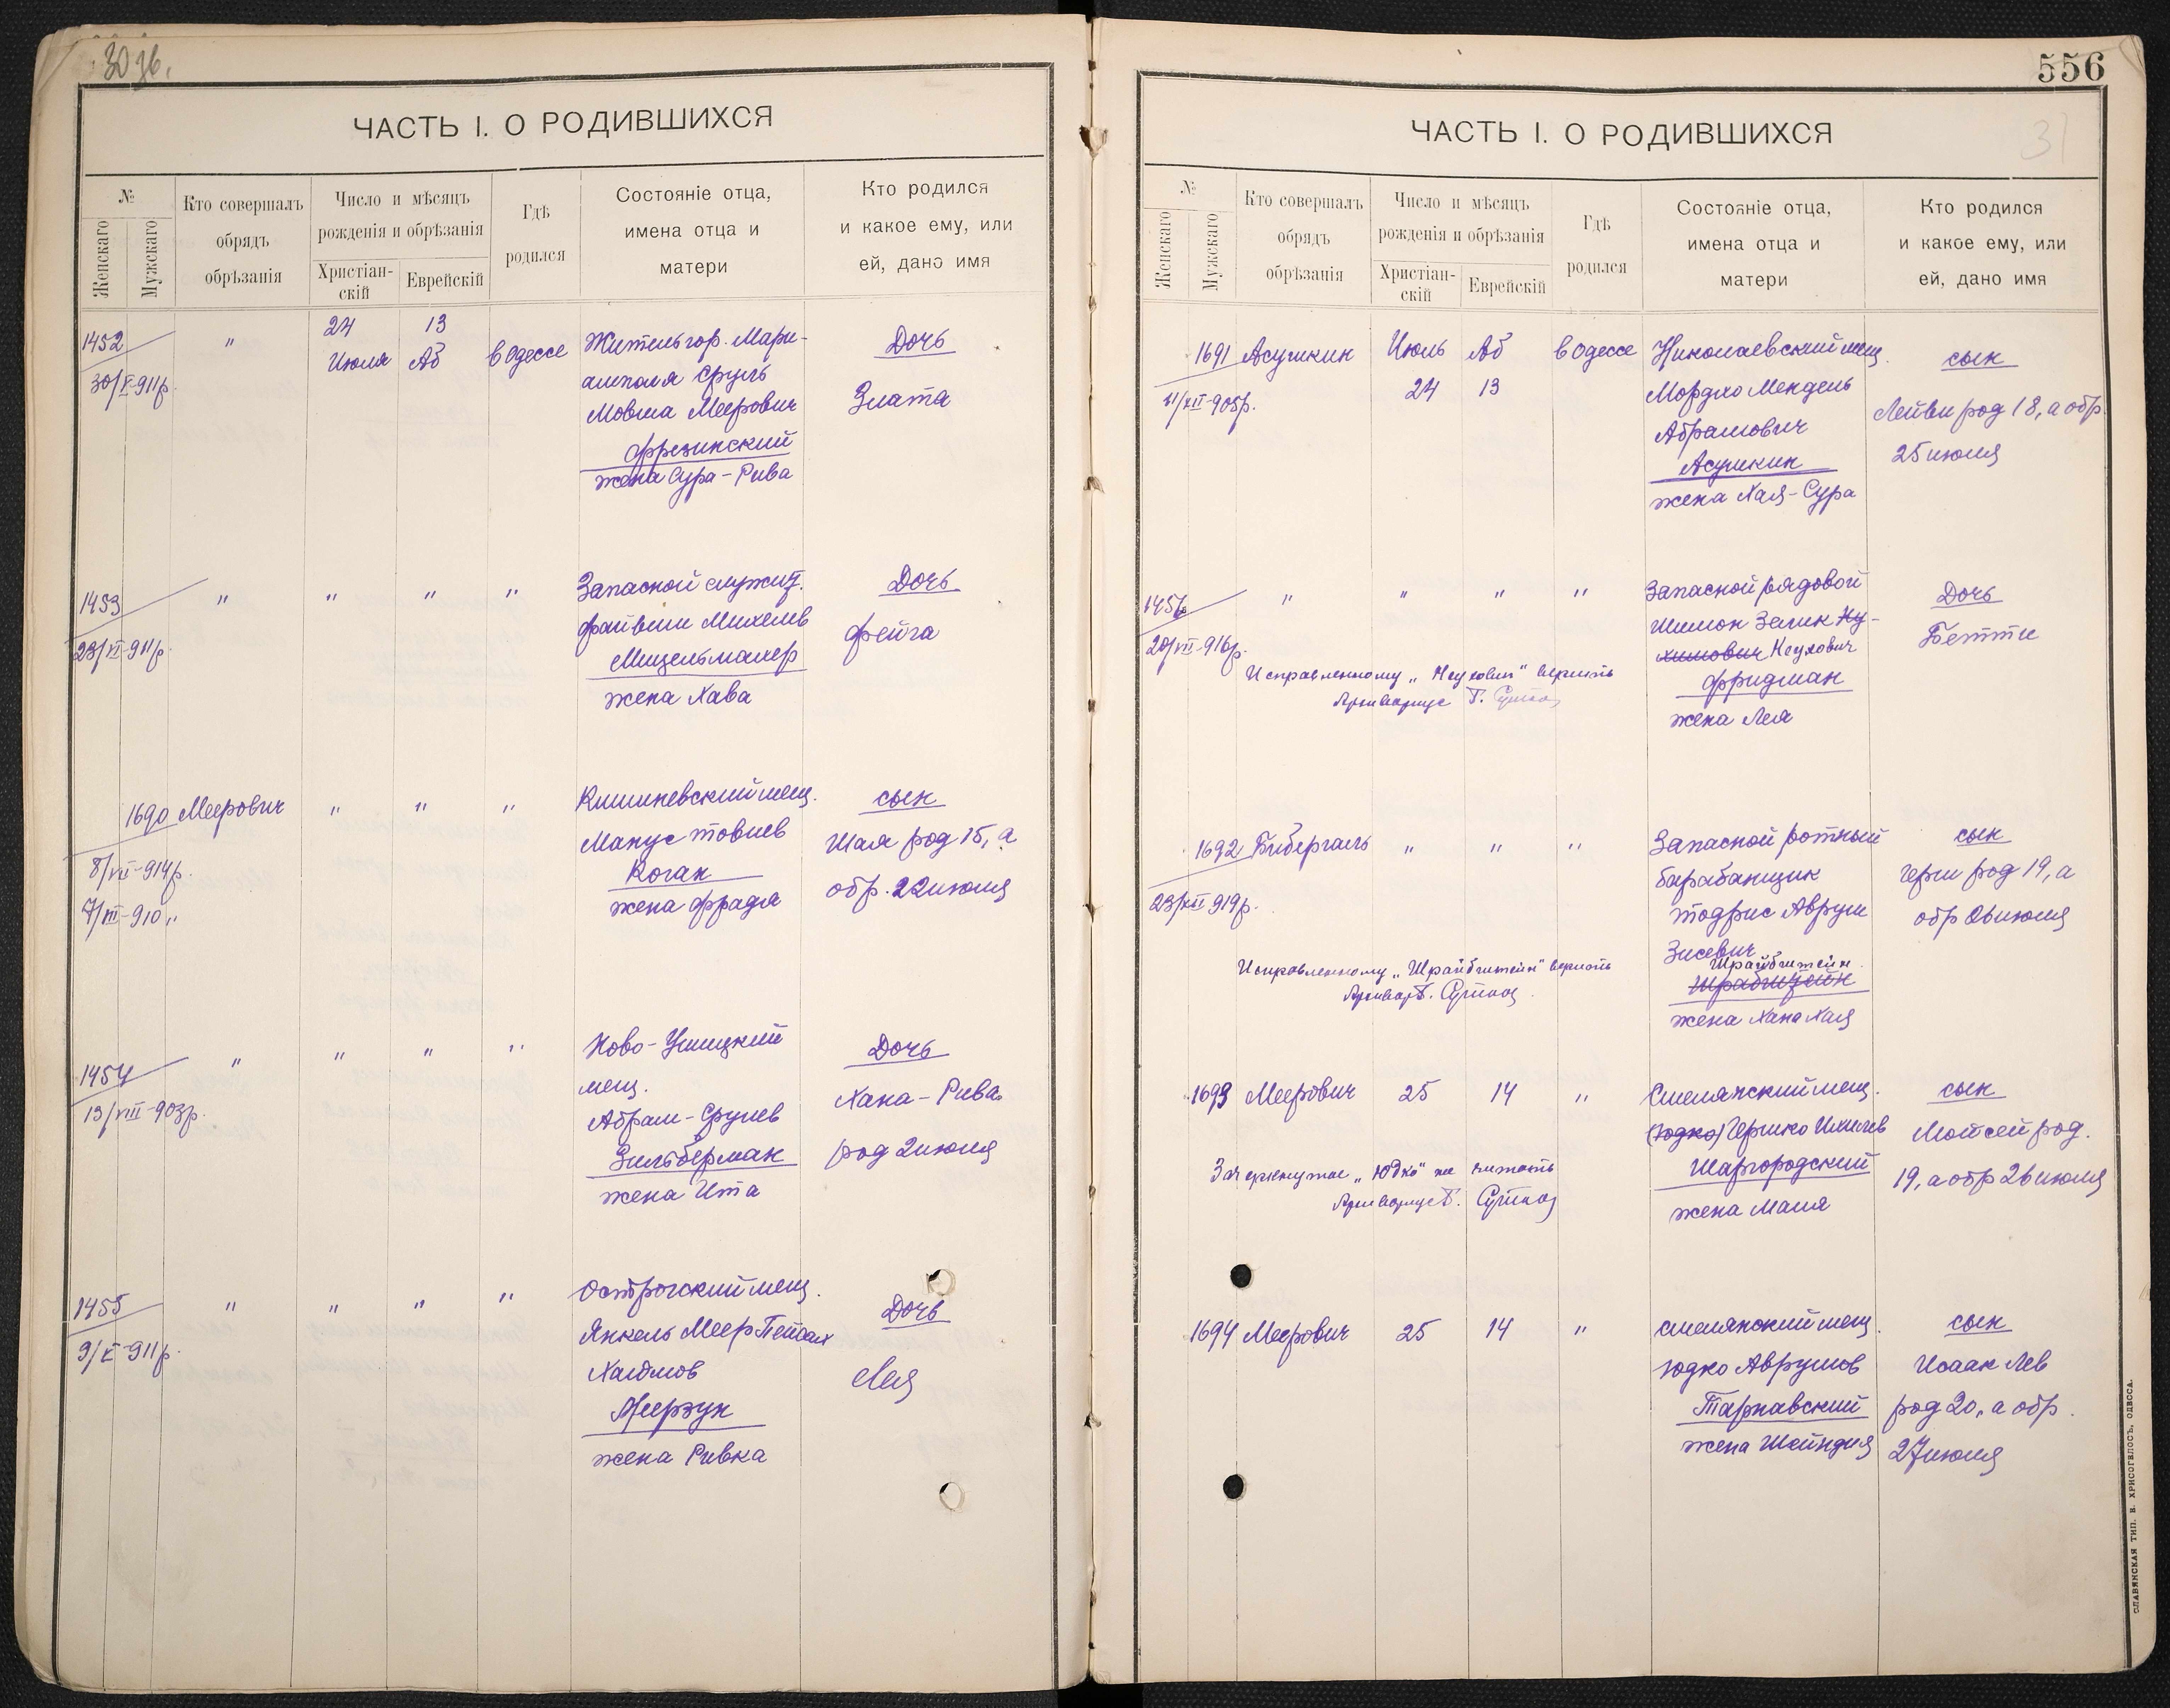 30 зв.
ЧАСТЬ I. О РОДИВШИХСЯ
№
Женскаго
Мужскаго
Кто совершалъ
обрядъ
обрѣзанія
Число и мѣсяцъ
рожденія и обрѣзанія
Христіан-
скій
Еврейскій
Гдѣ
родился
Состояніе отца,
имена отца и
матери
Кто родился
и какое ему, или
ей, дано имя
1452
30/V-911р.
"
24
Июля
13
Аб
в Одессе
Житель гор. Мари-
амполя Сруль
Мовша Меерович
Фрезинский
жена Сура-Рива
Дочь
Злата
1453
23/VI-911р.
" " " "
Запасной служит.
Файвиш Михелев
Мицельмахер
жена Хава
Дочь
Фейга
1690 Меерович " " "
8/VII-914р.
7/III-910"
Кишиневский мещ.
Манус Товиев
Коган
жена Фрадя
сын
Шая род 15, а
обр. 22 июля
1454
13/VIII-903р.
" " " "
Ново-Ушицкий
мещ.
Абрам-Срулев
Зильберман
жена Ита
Дочь
Хана-Рива
род 2 июля
1455
9/X-911р.
" " " "
Острогский мещ.
Янкель Меер Пейсах
Хаимов
Меерзун
жена Ривка
Дочь
Лея
556
31
ЧАСТЬ I. О РОДИВШИХСЯ
№
Женскаго
Мужскаго
Кто совершалъ
обрядъ
обрѣзанія
Число и мѣсяцъ
рожденія и обрѣзанія
Христіан-
скій
Еврейскій
Гдѣ
родился
Состояніе отца,
имена отца и
матери
Кто родился
и какое ему, или
ей, дано имя
1691 Асушкин
11/XII-905р.
Июль
24
Аб
13
в Одессе
Николаевский мещ.
Мордко Мендель
Абрамович
Асушкин
жена Хая-Сура
сын
Лейви род 18, а обр.
25 июля
1456
20/VII-916р.
" " " "
Запасной рядовой
Шимон Зелик Ну-
химович Неухович
Фридман
жена Лея
Дочь
Бетти
Исправленному „Неухович" верить
Архивариус Т.
1692 Бибергаль " " "
23/XII 919р.
Запасной ротный
барабанщик
Тодрис Аврум
Зисевич
Шрайбштейн
Шрабштейн
жена Хана Хая
сын
Герш род 19, а
обр 26 июля
Исправленному „Шрайбштейн" верить
Архивар Т.
1693 Меерович 25 14 "
Смелянский мещ.
(Юдко) Гершко Ихилев
Шаргородский
жена Маля
сын
Мойсей род.
19, а обр 26 июля
Зачеркнутое „Юдко" не читать
Архивариус Т.
1694 Меерович 25 14 "
Смелянский мещ.
Юдко Аврумов
Тарнавский
жена Шейндля
сын
Исаак Лев
род 20, а обр.
27 июля
СЛАВЯНСКАЯ ТИП. Е. ХРИСОГЕЛОСЪ, ОДЕССА.